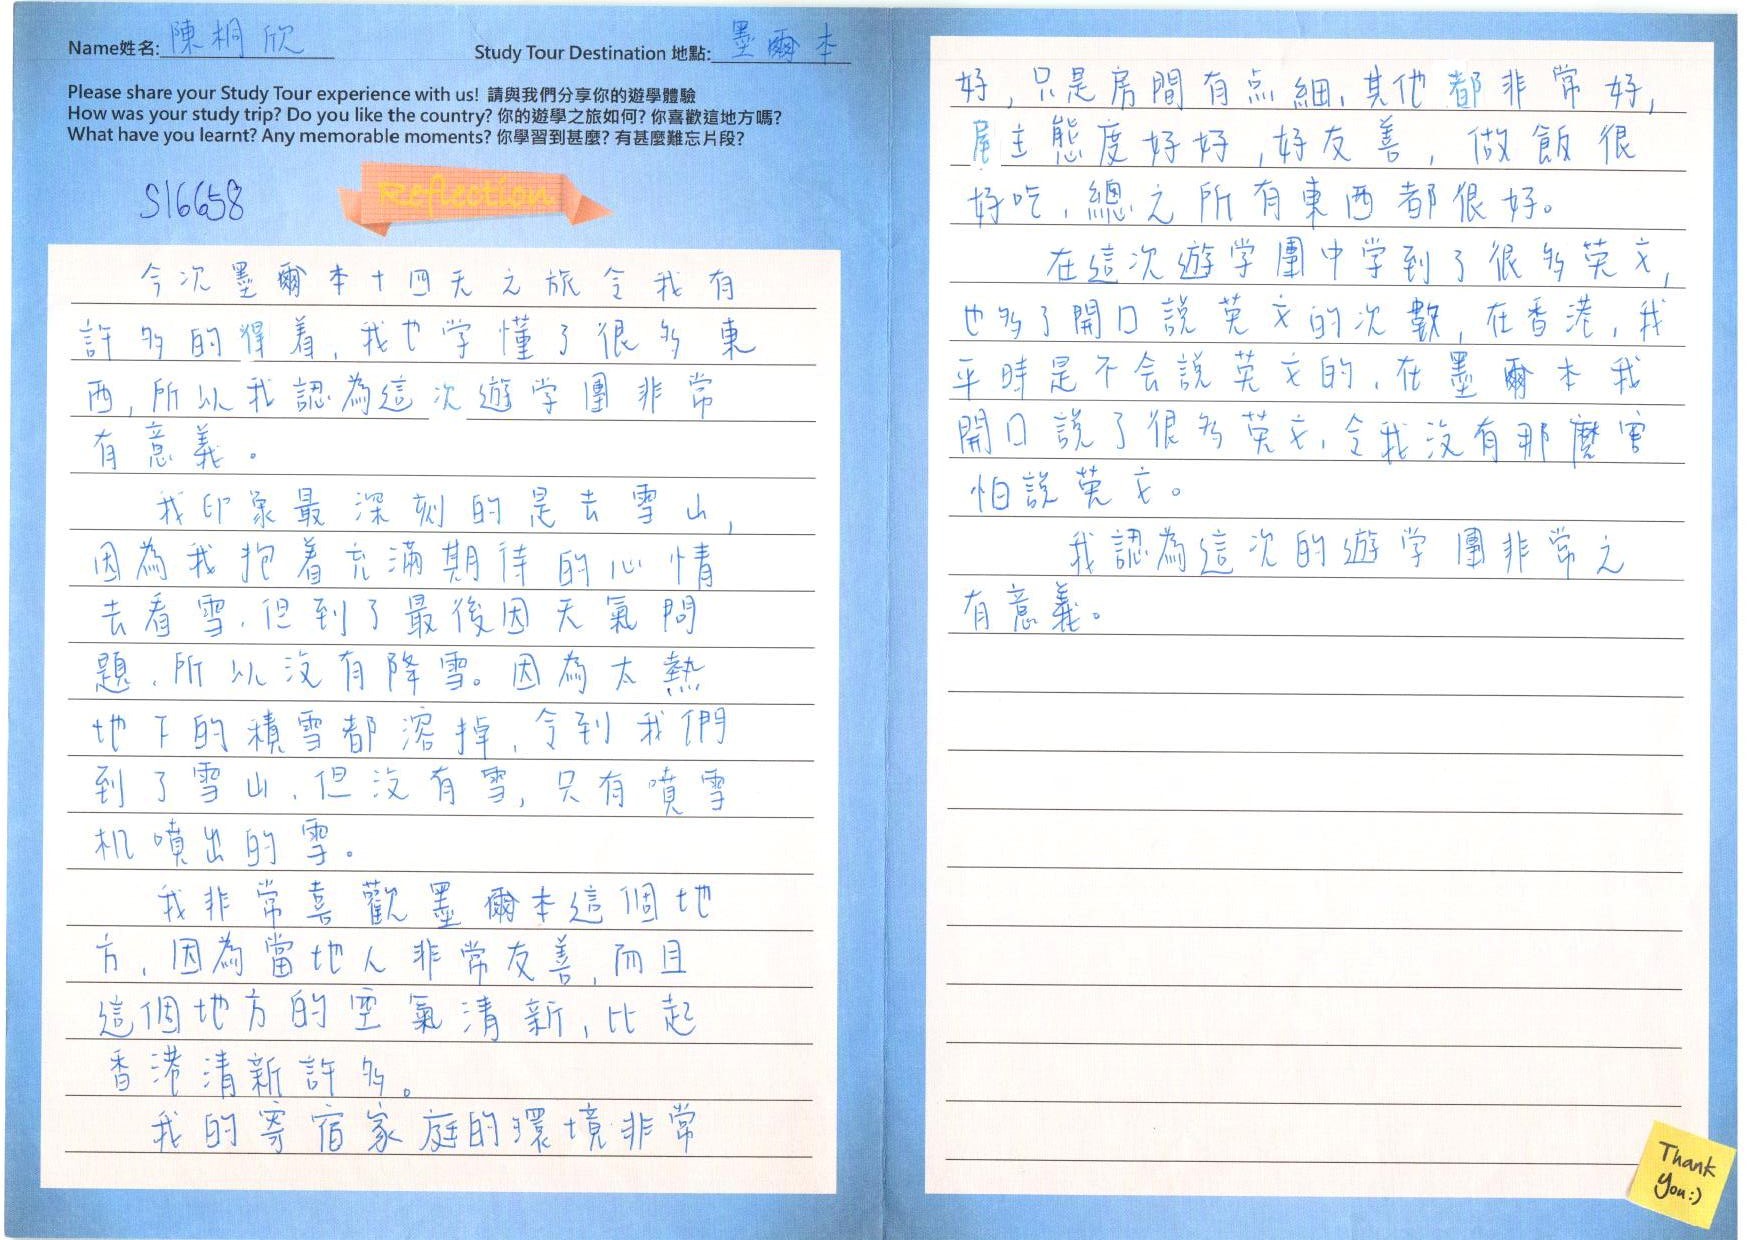 Name姓名: 陳桐欣
Study Tour Destination 地點: 墨爾本
Please share your Study Tour experience with us! 請與我們分享你的遊學體驗
How was your study trip? Do you like the country? 你的遊學之旅如何? 你喜歡這地方嗎?
What have you learnt? Any memorable moments? 你學習到甚麼? 有甚麼難忘片段?
S16658
Reflection
今次墨爾本十四天之旅令我有
許多的得着,我也学懂了很多東
西,所以我認為這次遊学團非常
有意義。
我印象最深刻的是去雪山,
因為我抱着充滿期待的心情
去看雪,但到了最後因天氣問
題,所以沒有降雪。因為太熱
地下的積雪都溶掉,令到我們
到了雪山,但沒有雪,只有噴雪
机噴出的雪。
我非常喜歡墨爾本這個地
方,因為當地人非常友善,而且
這個地方的空氣清新,比起
香港清新許多。
我的寄宿家庭的環境非常
好,只是房間有点細,其他都非常好,
屋主態度好好,好友善,做飯很
好吃,總之所有東西都很好。
在這次遊学團中学到了很多英文,
也多了開口說英文的次數,在香港,我
平時是不会說英文的,在墨爾本我
開口說了很多英文,令我沒有那麼害
怕說英文。
我認為這次的遊学團非常之
有意義。
Thank
you:)